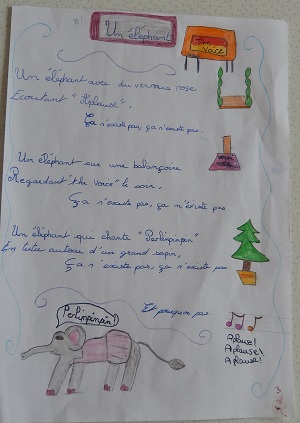 Un éléphant
The Voice
Un éléphant avec du vernis rose
Ecoutant "Aplause",
Ça n'existe pas, ça n'existe pas.
Un éléphant sur une balançoire
Regardant "the Voice" le soir,
Ça n'existe pas, ça n'existe pas
Un éléphant qui chante "Perlinpinpin"
En tutu autour d'un grand sapin,
Ça n'existe pas, ça n'existe pas
Et pourquoi pas
Perlinpinpin!
Aplause!
Aplause!
Aplause!
3